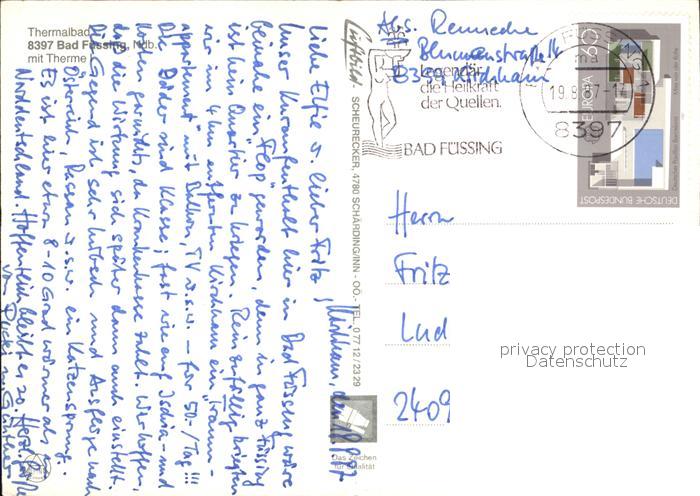 Thermalbad
8397 Bad Füssing, Ndb.
mit Therme
Luftbild-
SCHEURECKER, 4780 SCHÄRDING/INN - OÖ.- TEL. 0 77 12 / 23 29
Kirchham, den 18.8.87
Liebe Elfie u. lieber Fritz,
Unser Kuraufenthalt hier in Bad Füssing wäre
beinahe ein Flop geworden, denn in ganz Füssing
ist kein Quartier zu kriegen. Rein zufällig kriegten
wir in 4 km entfernten Kirchham ein "Traum-
appartement" mit Balkon, TV u.s.w. – für 50.-/Tag!!!
Die Bäder sind Klasse; fast wie auf Ischia – und
kosten garnichts, da Krankenkasse zahlt. Wir hoffen,
daß die Wirkung sich später dann auch einstellt.
Die Gegend ist sehr hübsch und Ausflüge nach
Östreich, Passau u.s.w. ein Katzensprung.
Es ist hier etwa 8-10 Grad wärmer als in
Norddeutschland. Hoffentlich bleibt es so. Herzl. Grüße
von
Abs. Rennecke
Blumenstraße 16
8399 Kirchham
Legendär
die Heilkraft
der Quellen.
BAD FÜSSING
19.8.87-14
8397
80
EUROPA
DEUTSCHE BUNDESPOST
Herrn
Fritz
Lud
2409
privacy protection
Datenschutz
Das Zeichen
für Qualität